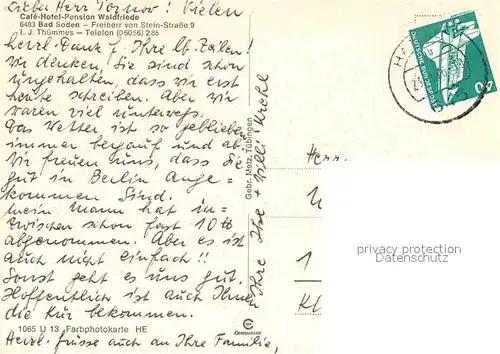 Lieber Herr Tornow! Vielen
Café-Hotel-Pension Waldfriede
6483 Bad Soden – Freiherr von Stein-Straße 9
I. J. Thümmes – Telefon (06056) 285
herzl. Dank f. Ihre lb. Zeilen!
Wir denken, Sie sind schon
ungehalten, dass wir erst
heute schreiben. Aber wir
waren viel unterwegs.
Das Wetter ist so geblieben
immer bergauf und ab.
Wir freuen uns, dass Sie
gut in Berlin ange-
kommen sind.
Mein Mann hat in-
zwischen schon fast 10 tt
abgenommen. Aber es ist
auch nicht einfach!!
Sonst geht es uns gut.
Hoffentlich ist auch Ihnen
die Kur bekommen.
1065 U 13 Farbphotokarte HE
Herzl. Grüsse auch an Ihre Familie,
Ihre Ilse + Willi
Gebr. Metz, Tübingen
DEUTSCHE BUNDESPOST
Herr.
1
privacy protection
AKPOOL.DE